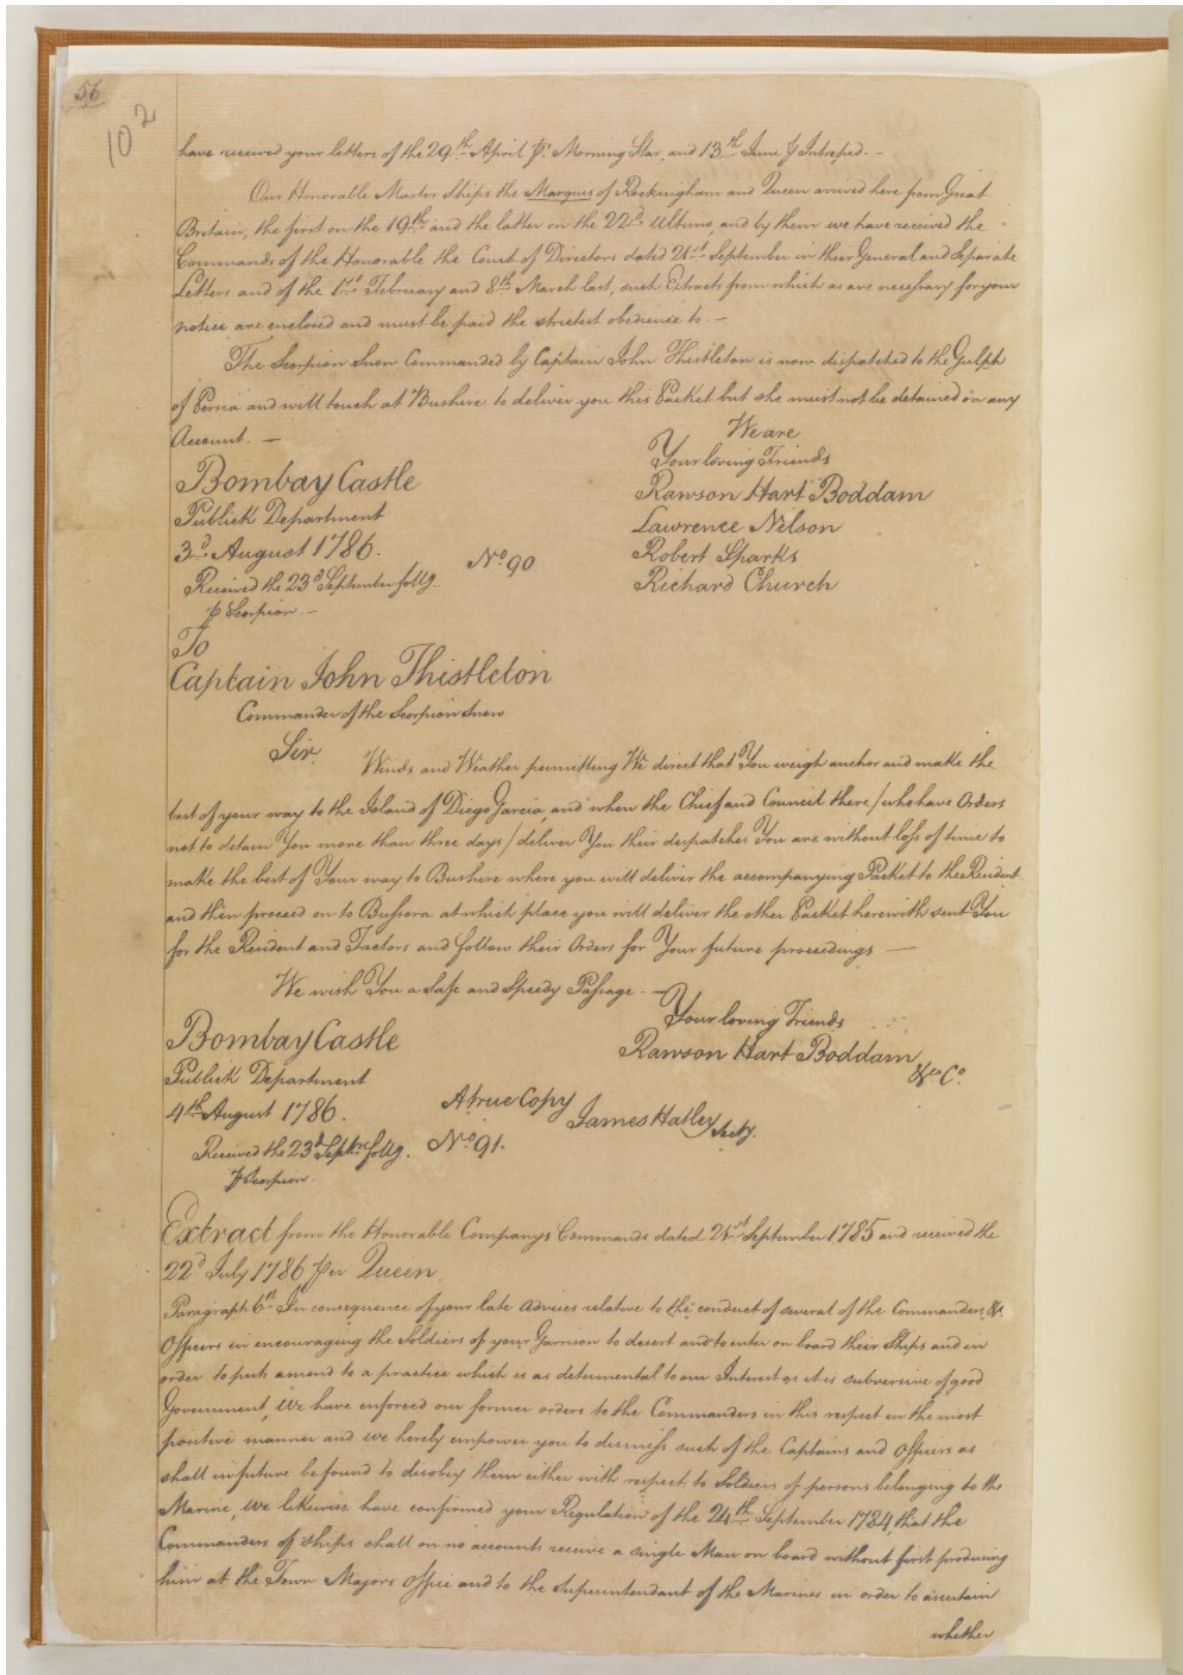 56
102
have received your letters of the 29th April pr. Morning Star, and 13th June p Intrepid. -
Our Honorable Master Ships the Marques of Rockingham and Queen arrived here from Great
Britain, the first on the 19th and the latter on the 22d Ultimo, and by them we have received the
Commands of the Honorable the Court of Directors dated 21st September in their General and Separate
Letters and of the 1st February and 8th March last, such Extracts from which as are necessary for your
notice are enclosed and must be paid the strictest obedience to. -
The Scorpion Snow Commanded by Captain John Thistleton is now dispatched to the Gulph
of Persia and will touch at Bushire to deliver you this Packet but she must not be detained on any
Account. -
We are
Your loving Friends
Bombay Castle
Rawson Hart Boddam
Publick Department
Lawrence Nilson
3d. August 1786.
Robert Sparks
No. 90
Received the 23d September follg.
Richard Church
p Scorpion. -
To
Captain John Thistleton
Commander of the Scorpion Snow
Sir.
Winds and Weather permitting We direct that You weigh anchor and make the
best of your way to the Island of Diego Garcia, and when the Chief and Council there / who have Orders
not to detain You more than three days / deliver You their dispatches You are without loss of time to
make the best of Your way to Bushire where you will deliver the accompanying Packet to the Resident
and then proceed on to Bussora at which place you will deliver the other Packet herewith sent You
for the Resident and Factors and follow their Orders for Your future proceedings -
We wish You a Safe and Speedy Passage. -
Your loving Friends
Bombay Castle
Rawson Hart Boddam
&ca Co.
Publick Department
4th August 1786.
A true Copy
James Hatley Secty.
Received the 23d Septbre follg.
No. 91.
p Scorpion.
Extract from the Honorable Companys Commands dated 21st September 1785 and received the
22d July 1786 per Queen.
Paragraph 6th. In consequence of your late advices relative to the conduct of several of the Commanders &
Officers in encouraging the Soldiers of your Garrison to desert and to enter on board their Ships and in
order to put amend to a practice which is as detrimental to our Interest as it is subversive of good
Government, We have enforced our former orders to the Commanders in this respect in the most
positive manner and we hereby empower you to dismiss such of the Captains and Officers as
shall in future be found to disobey them either with respect to Soldiers of persons belonging to the
Marine, We likewise have confirmed your Regulation of the 24th September 1784, that the
Commanders of ships shall on no accounts receive a single Man on board without first producing
him at the Town Majors Office and to the Superintendant of the Marines in order to ascertain
whether